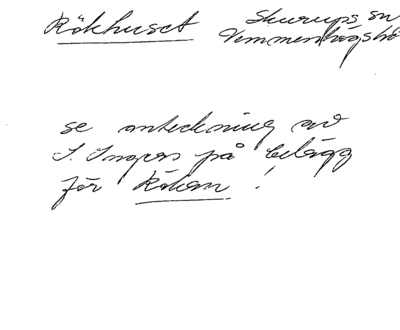 Rökhuset Skurups sn
Vemmenhögs hd
se anteckning av
I. Ingers på belägg
för Röken !